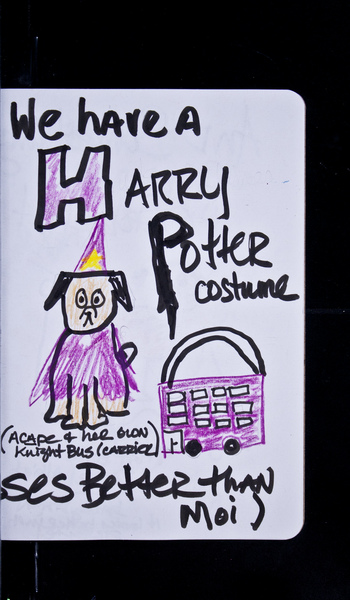 We have A
HARRY
Potter
costume
(A CAPE & her own
Knight Bus (carrier)
ses Better than
Moi)